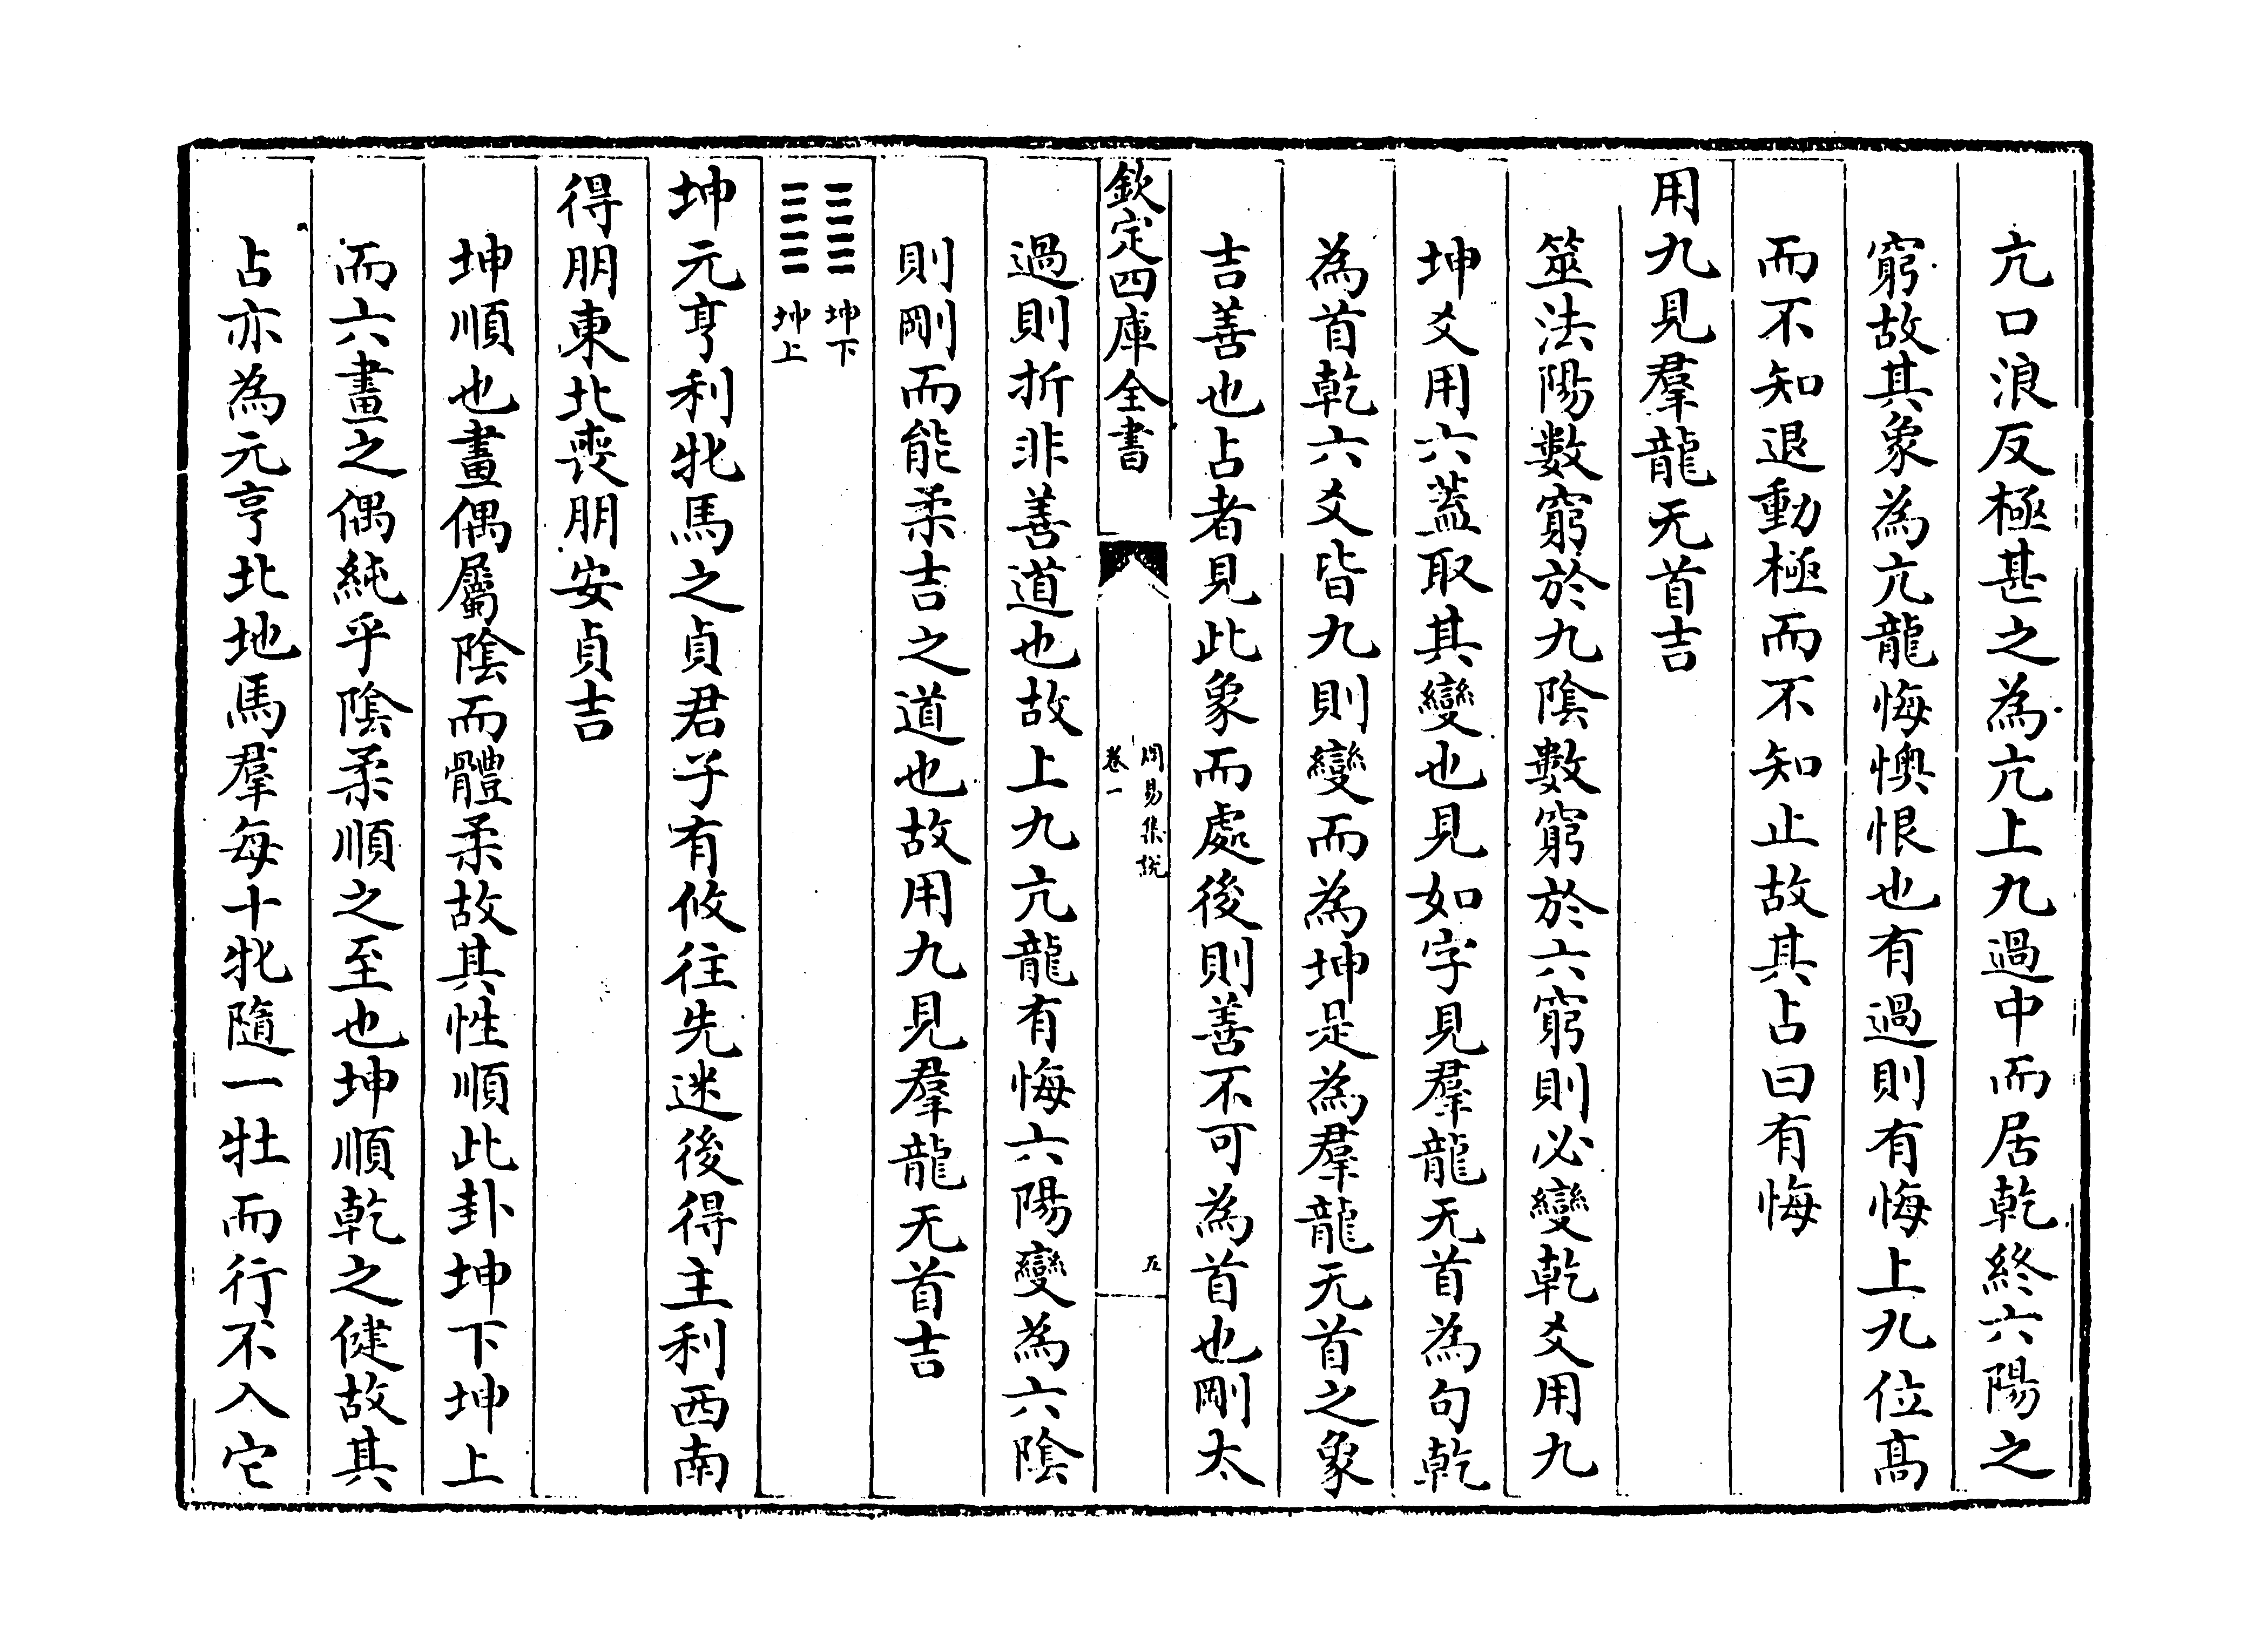 亢口浪反極甚之為亢上九過中而居乾終六陽之
窮故其象為亢龍悔懊恨也有過則有悔上九位高
而不知退動極而不知止故其占曰有悔
用九見羣龍无首吉
筮法陽數窮於九陰數窮於六窮則必變乾爻用九
坤爻用六蓋取其變也見如字見羣龍无首為句乾
為首乾六爻皆九則變而為坤是為羣龍无首之象
吉善也占者見此象而處後則善不可為首也剛太
欽定四庫全書
周易集說
卷一
五
過則折非善道也故上九亢龍有悔六陽變為六陰
則剛而能柔吉之道也故用九見羣龍无首吉
坤下
坤上
坤元亨利牝馬之貞君子有攸往先迷後得主利西南
得朋東北喪朋安貞吉
坤順也畫偶屬陰而體柔故其性順此卦坤下坤上
而六畫之偶純乎陰柔順之至也坤順乾之健故其
占亦為元亨北地馬羣每十牝隨一牡而行不入它